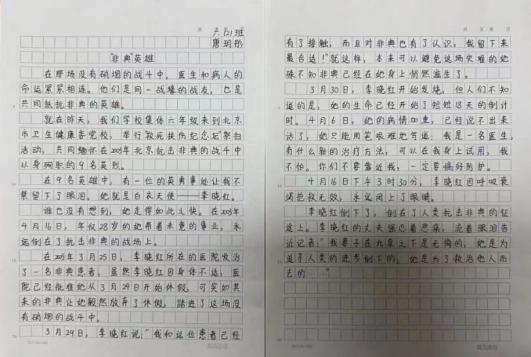 六(5)班
“非典”英雄
在那场没有硝烟的战斗中，医生和病人的
命运紧紧相连。他们是同一战壕的战友，也是
共同抵抗非典的英雄。
就在昨天，我们学校集体六年级来到北京
市卫生健康委党校，举行祭死扶伤纪念
活动，共同缅怀在2003年北京抗击非典的战斗中
以身殉职的9名英烈。
在9名英雄中，有一位的英勇事迹让我不
禁留下了眼泪。她就是白衣天使——李晓红。
谁也没有想到，她走得如此之快。在2003年
4月16日，年仅28岁的她带着未竟的事业，永
远倒在了抗击非典的战场上。
在2003年3月25日，李晓红所在的医院收治
了一名非典患者，虽然李晓红身体不适，医
院已经批准她从3月29日开始休假，可突如其
来的非典让她毅然放弃了休假，踏进了这场没
有硝烟的战斗中。
3月29日，李晓红说：“我和这位患者已经
有了接触，而且对非典也有了认识，我留下来
最合适！”就这样，本来可以避免这场灾难的她
殊不知非典已经在她身上悄然滋生了。
3月30日，李晓红开始发烧，但人们不知
道的是，她的生命已经开始了短短18天的倒计
时。4月6日，她的病情加重，已经说不出来
话了，她只能用笔艰难地写道：我是一名医生，
有什么新的治疗方法，可以在我身上试用，我
不怕。你们不要靠近我，一定要搞好防护。
4月16日下午3时30分，李晓红因呼吸衰
竭抢救无效，永远闭上了眼睛。
李晓红倒下了，倒在了人类抗击非典的征
途上。李晓红的丈夫强忍着悲痛，流着眼泪告
诉记者：“我妻子在九泉之下是无悔的，她是为
了人类的进步倒下的，她是为了救治他人而
去的……”